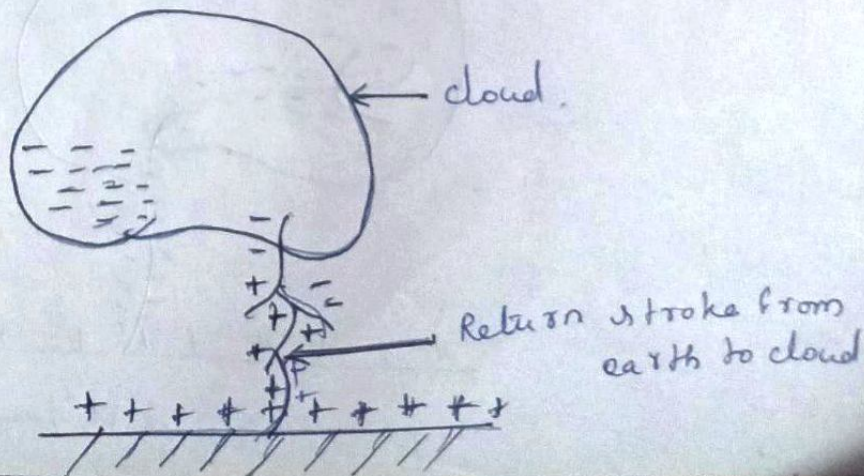 cloud.
Return stroke from
earth to cloud